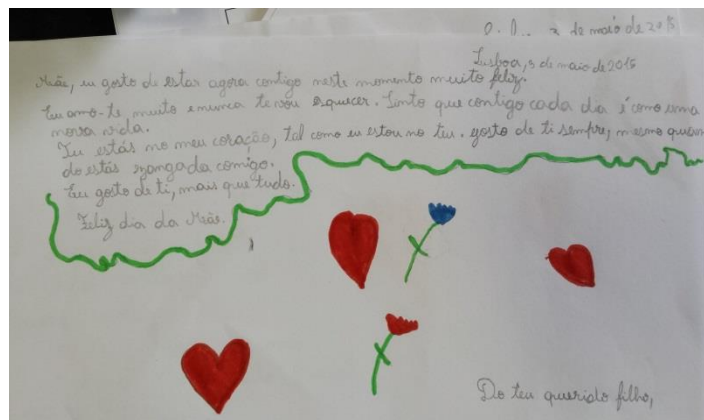 de maio de 2015
Lisboa, 3 de maio de 2015
Mãe, eu gosto de estar agora contigo neste momento muito feliz.
Eu amo-te, muito e nunca te vou esquecer. Sinto que contigo cada dia é como uma
nova vida.
Tu estás no meu coração, tal como eu estou no teu. gosto de ti sempre, mesmo quan
do estás zangada comigo.
Eu gosto de ti, mais que tudo.
Feliz dia da Mãe.
Do teu querido filho,